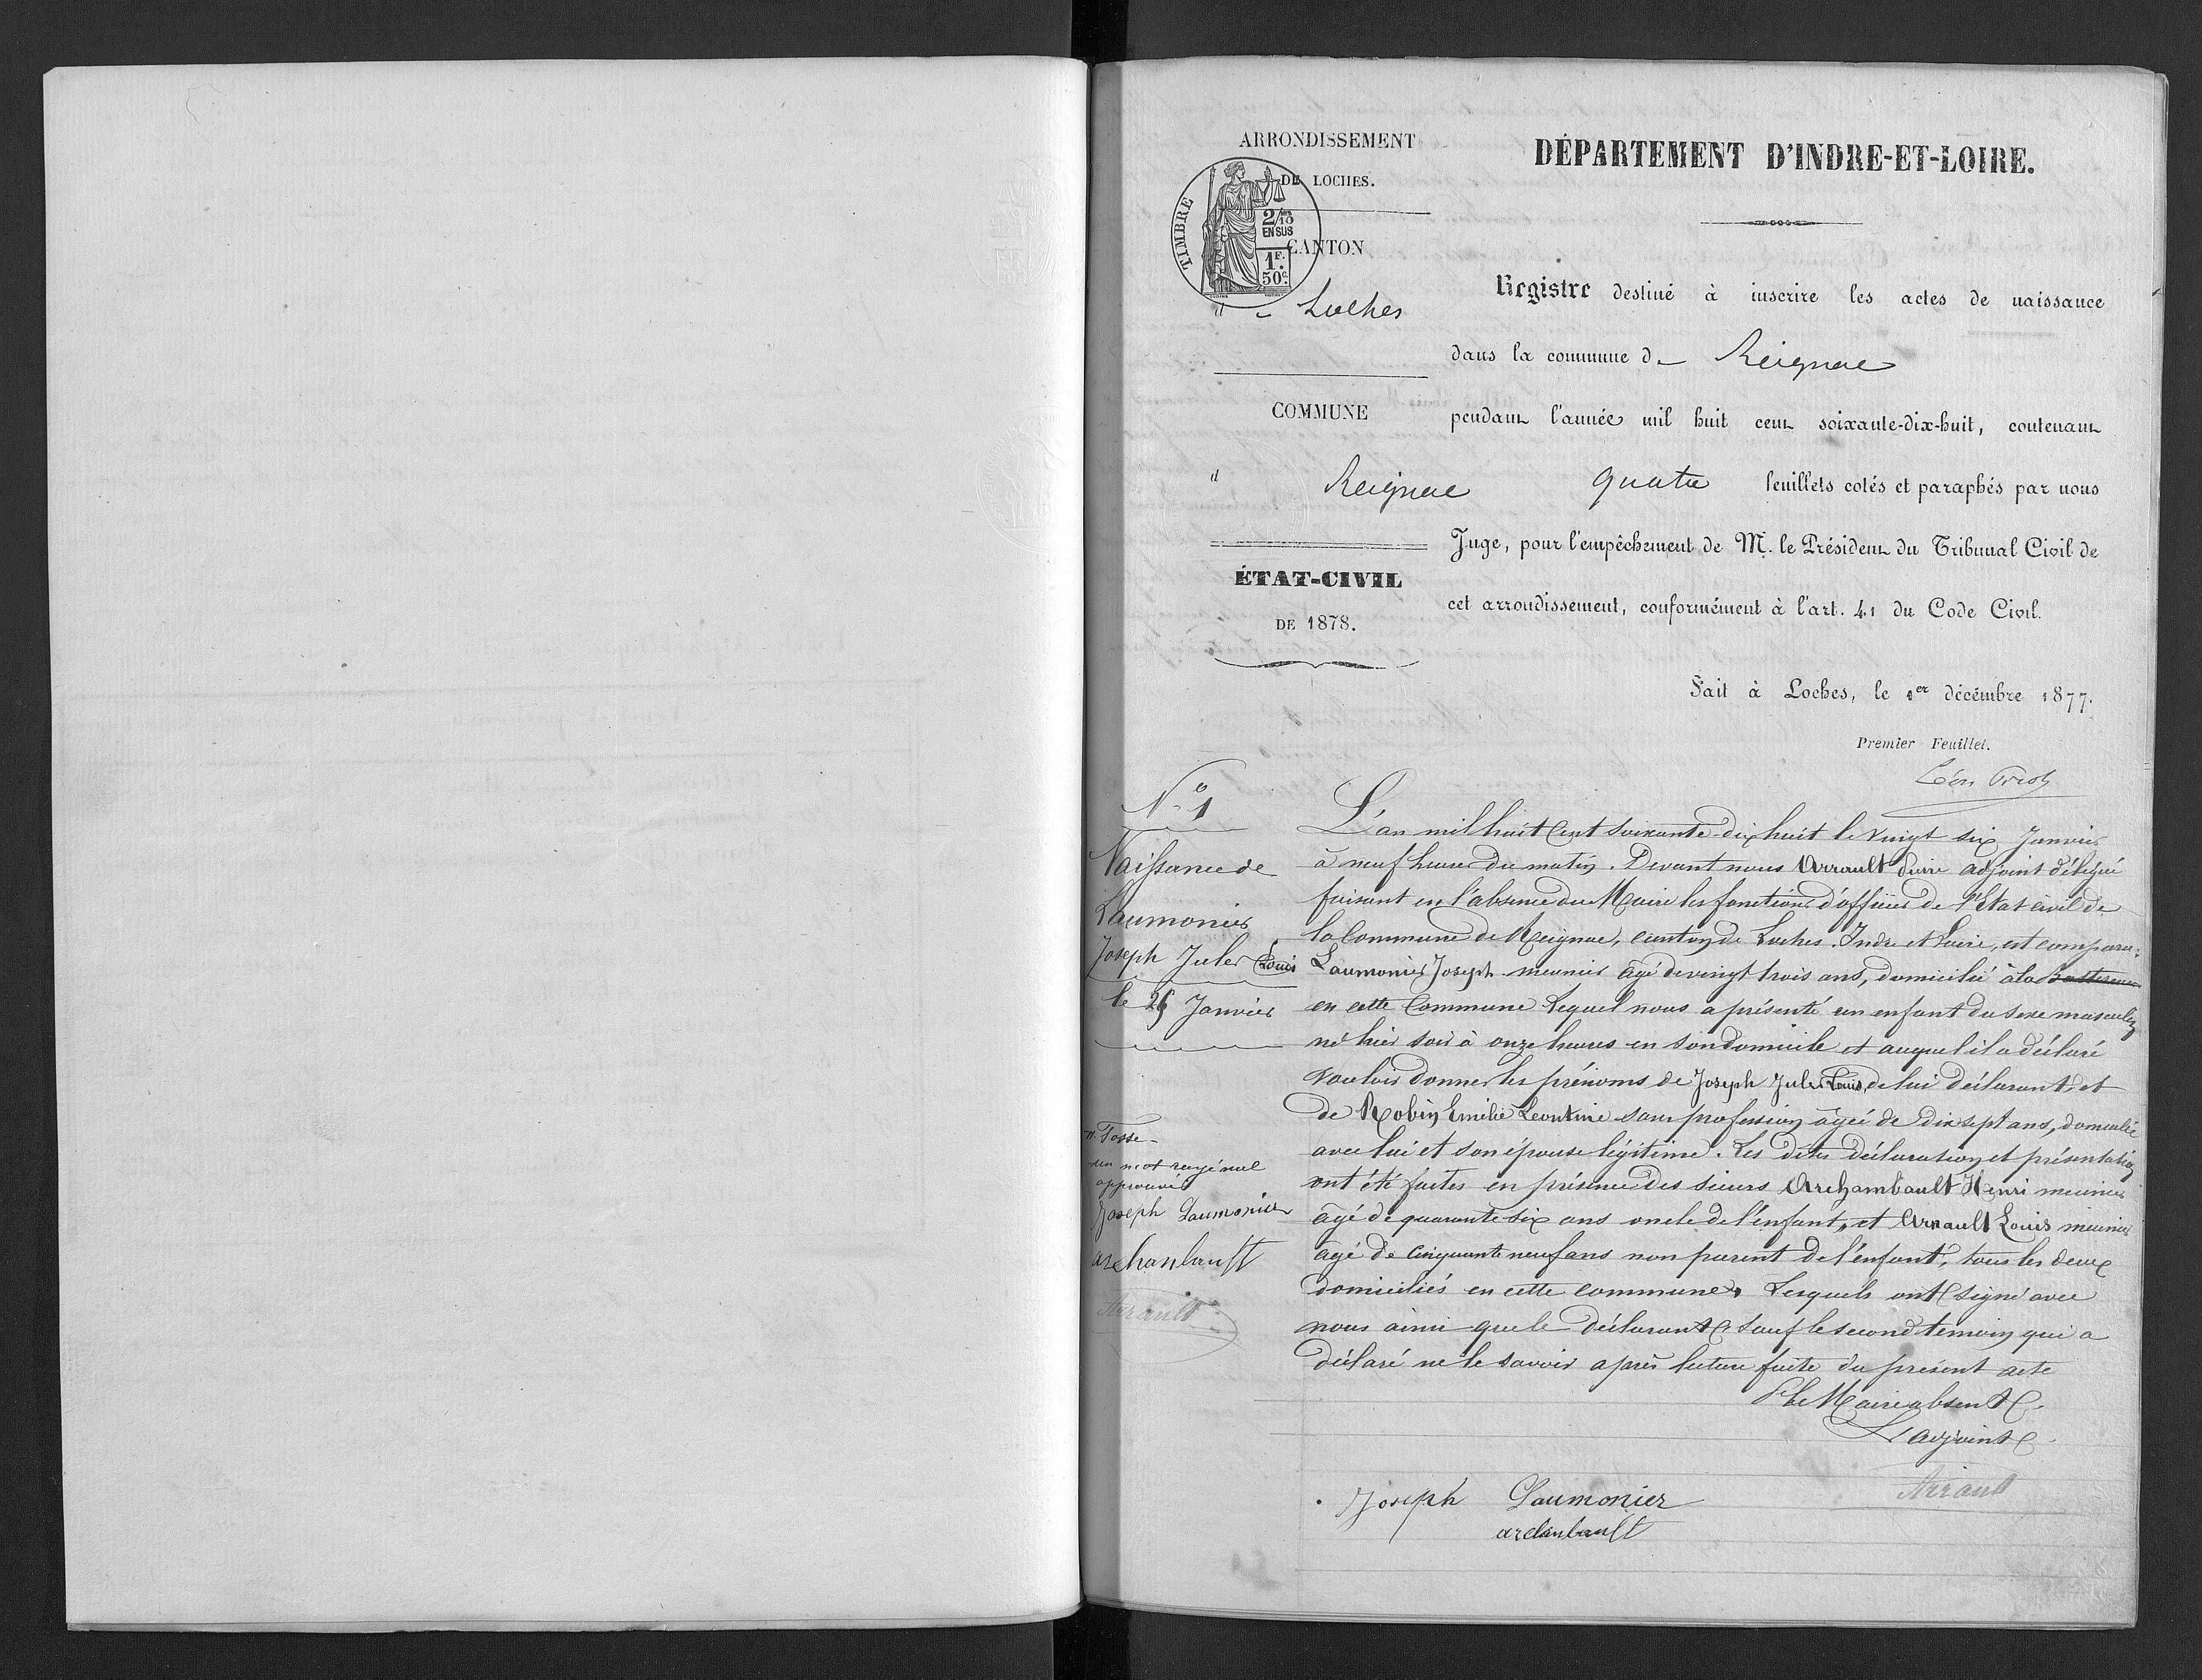 ARRONDISSEMENT
DE LOCHES.
TIMBRE
2/10
EN SUS
1F.
50c.
CANTON
d - Loches
COMMUNE
d Reignac
ÉTAT-CIVIL
DE 1878.
DÉPARTEMENT D'INDRE-ET-LOIRE.
Registre destiné à inscrire les actes de naissance
dans la commune de Reignac
pendant l'année mil huit cent soixante-dix-huit, contenant
quatre feuillets cotés et paraphés par nous
Juge, pour l'empêchement de M. le Président du Tribunal Civil de
cet arrondissement, conformément à l'art. 41 du Code Civil.
Fait à Loches, le 1er décembre 1877.
Premier Feuillet.
Léon
No 1
Naissance de
Laumonier
Joseph Jules Louis
le 25 Janvier
L'an mil huit Cent soixante-dix huit le Vingt six Janvier
à neuf heures du matin. Devant nous Arrault adjoint délégué
faisant en l'absence du Maire les fonctions d'officier de l'Etat civil de
la Commune de Reignac, canton de Loches. Indre et Loire, est comparu:
Laumonier Joseph meunier âgé de vingt trois ans, domicilié à la
en cette Commune Lequel nous a présenté un enfant du sexe masculin
né hier soir à onze heures en son domicile et auquel il a déclaré
vouloir donner les prénoms de Joseph Jules Louis, de lui déclarant et
de Robin Emilie Leontine sans profession âgée de dix sept ans, domiciliée
avec lui et son épouse légitime. Les dites déclaration et présentation
ont été faites en présence des sieurs Archambault Henri meunier
âgé de quarante six ans oncle de l'enfant, et Arrault Louis meunier
âgé de Cinquante neuf ans non parent de l'enfant, tous les deux
domiciliés en cette commune, Lesquels ont signé avec
nous ainsi que le déclarant sauf le second temoin qui a
déclaré ne le savoir après lecture faite du présent acte
Pr le Maire absent
L'adjoint
Arrault
Joseph Laumonier
archanbault
Fosse
un mot rayé nul
approuvé
Joseph Laumonier
archanbault
Arrault